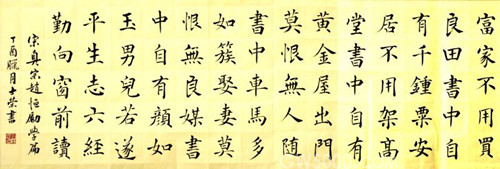 富家不用買
良田書中自
有千鍾粟安
居不用架高
堂書中自有
黃金屋出門
莫恨無人隨
書中車馬多
如簇娶妻莫
恨無良媒書
中自有顏如
玉男兒若遂
平生志六經
勤向窗前讀
宋真宗趙恒勵學篇
丁酉臘月士荣書